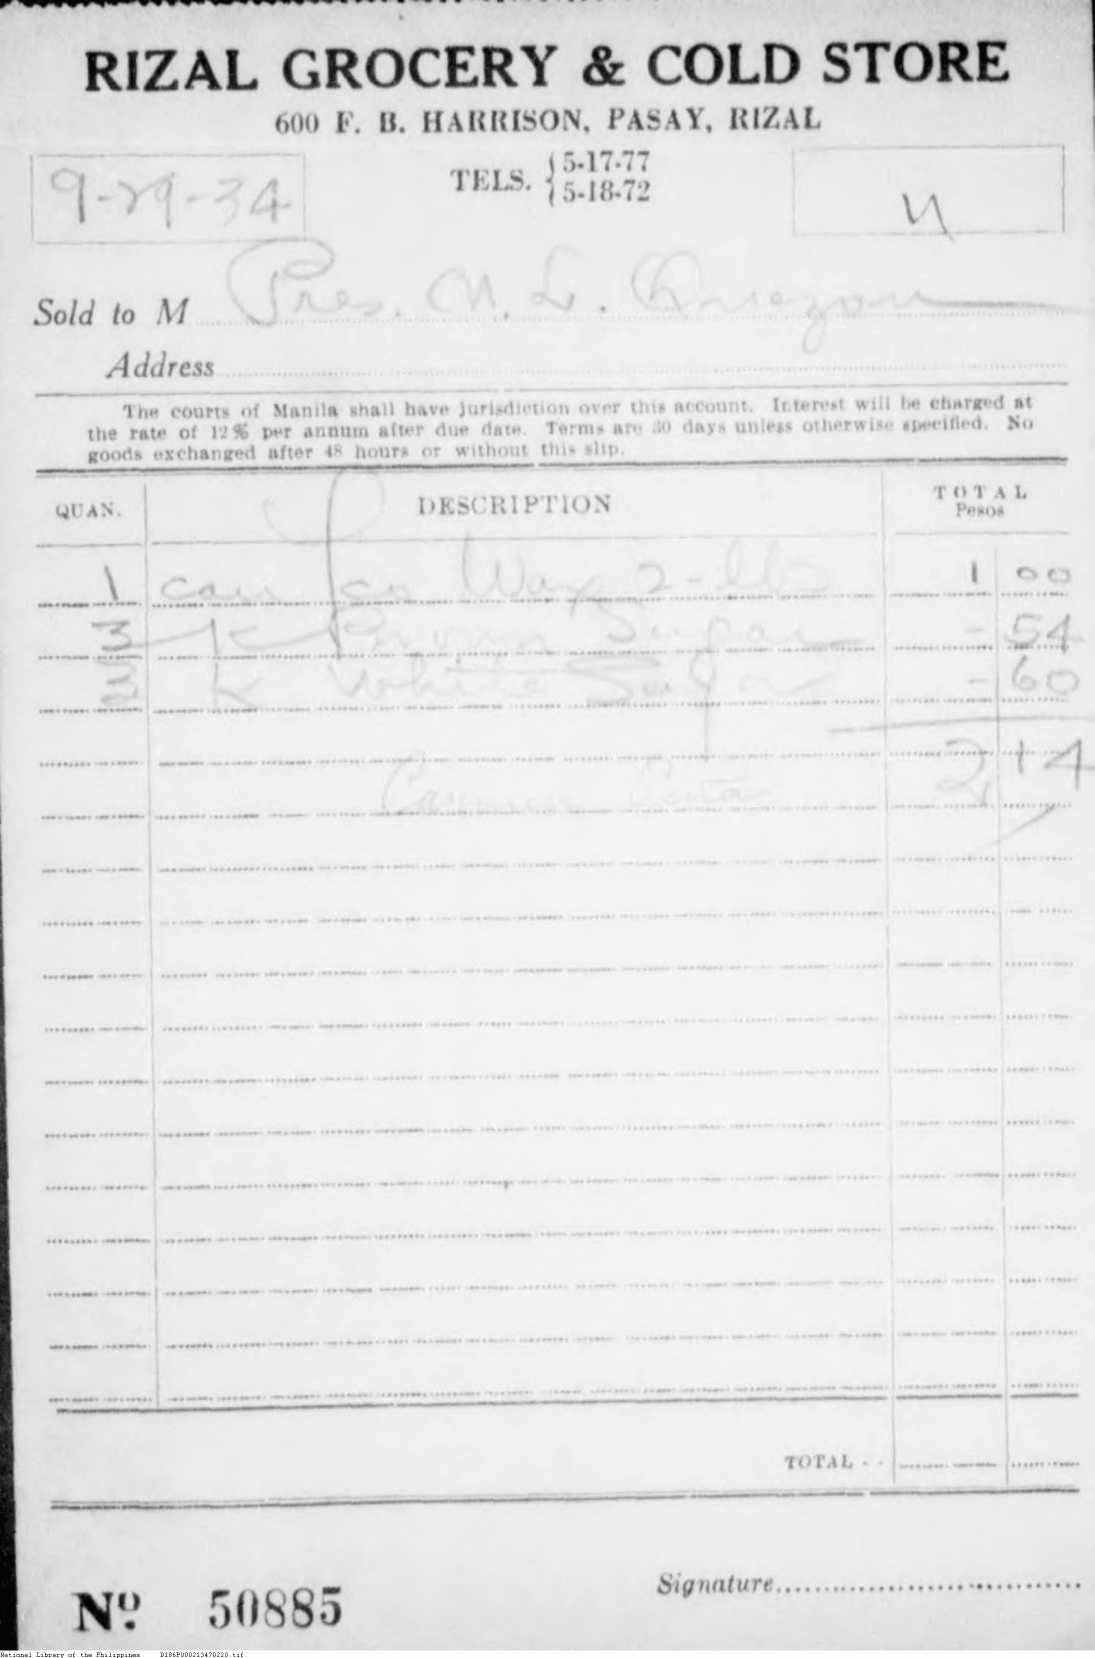 RIZAL GROCERY & COLD STORE
600 F. B. HARRISON, PASAY, RIZAL
TELS. { 5-17-77
5-18-72
9-29-34
Sold to M Pres. M. L. Quezon
Address
The courts of Manila shall have jurisdiction over this account. Interest will be charged at
the rate of 12% per annum after due date. Terms are 30 days unless otherwise specified. No
goods exchanged after 48 hours or without this slip.
QUAN. DESCRIPTION TOTAL
Pesos
1 can Wax 2-lb 1 00
3 K Brown Sugar - 54
3 K White Sugar - 60
2 14
TOTAL - -
Signature
Nº. 50885
National Library of the Philippines D186P000213470220.tif